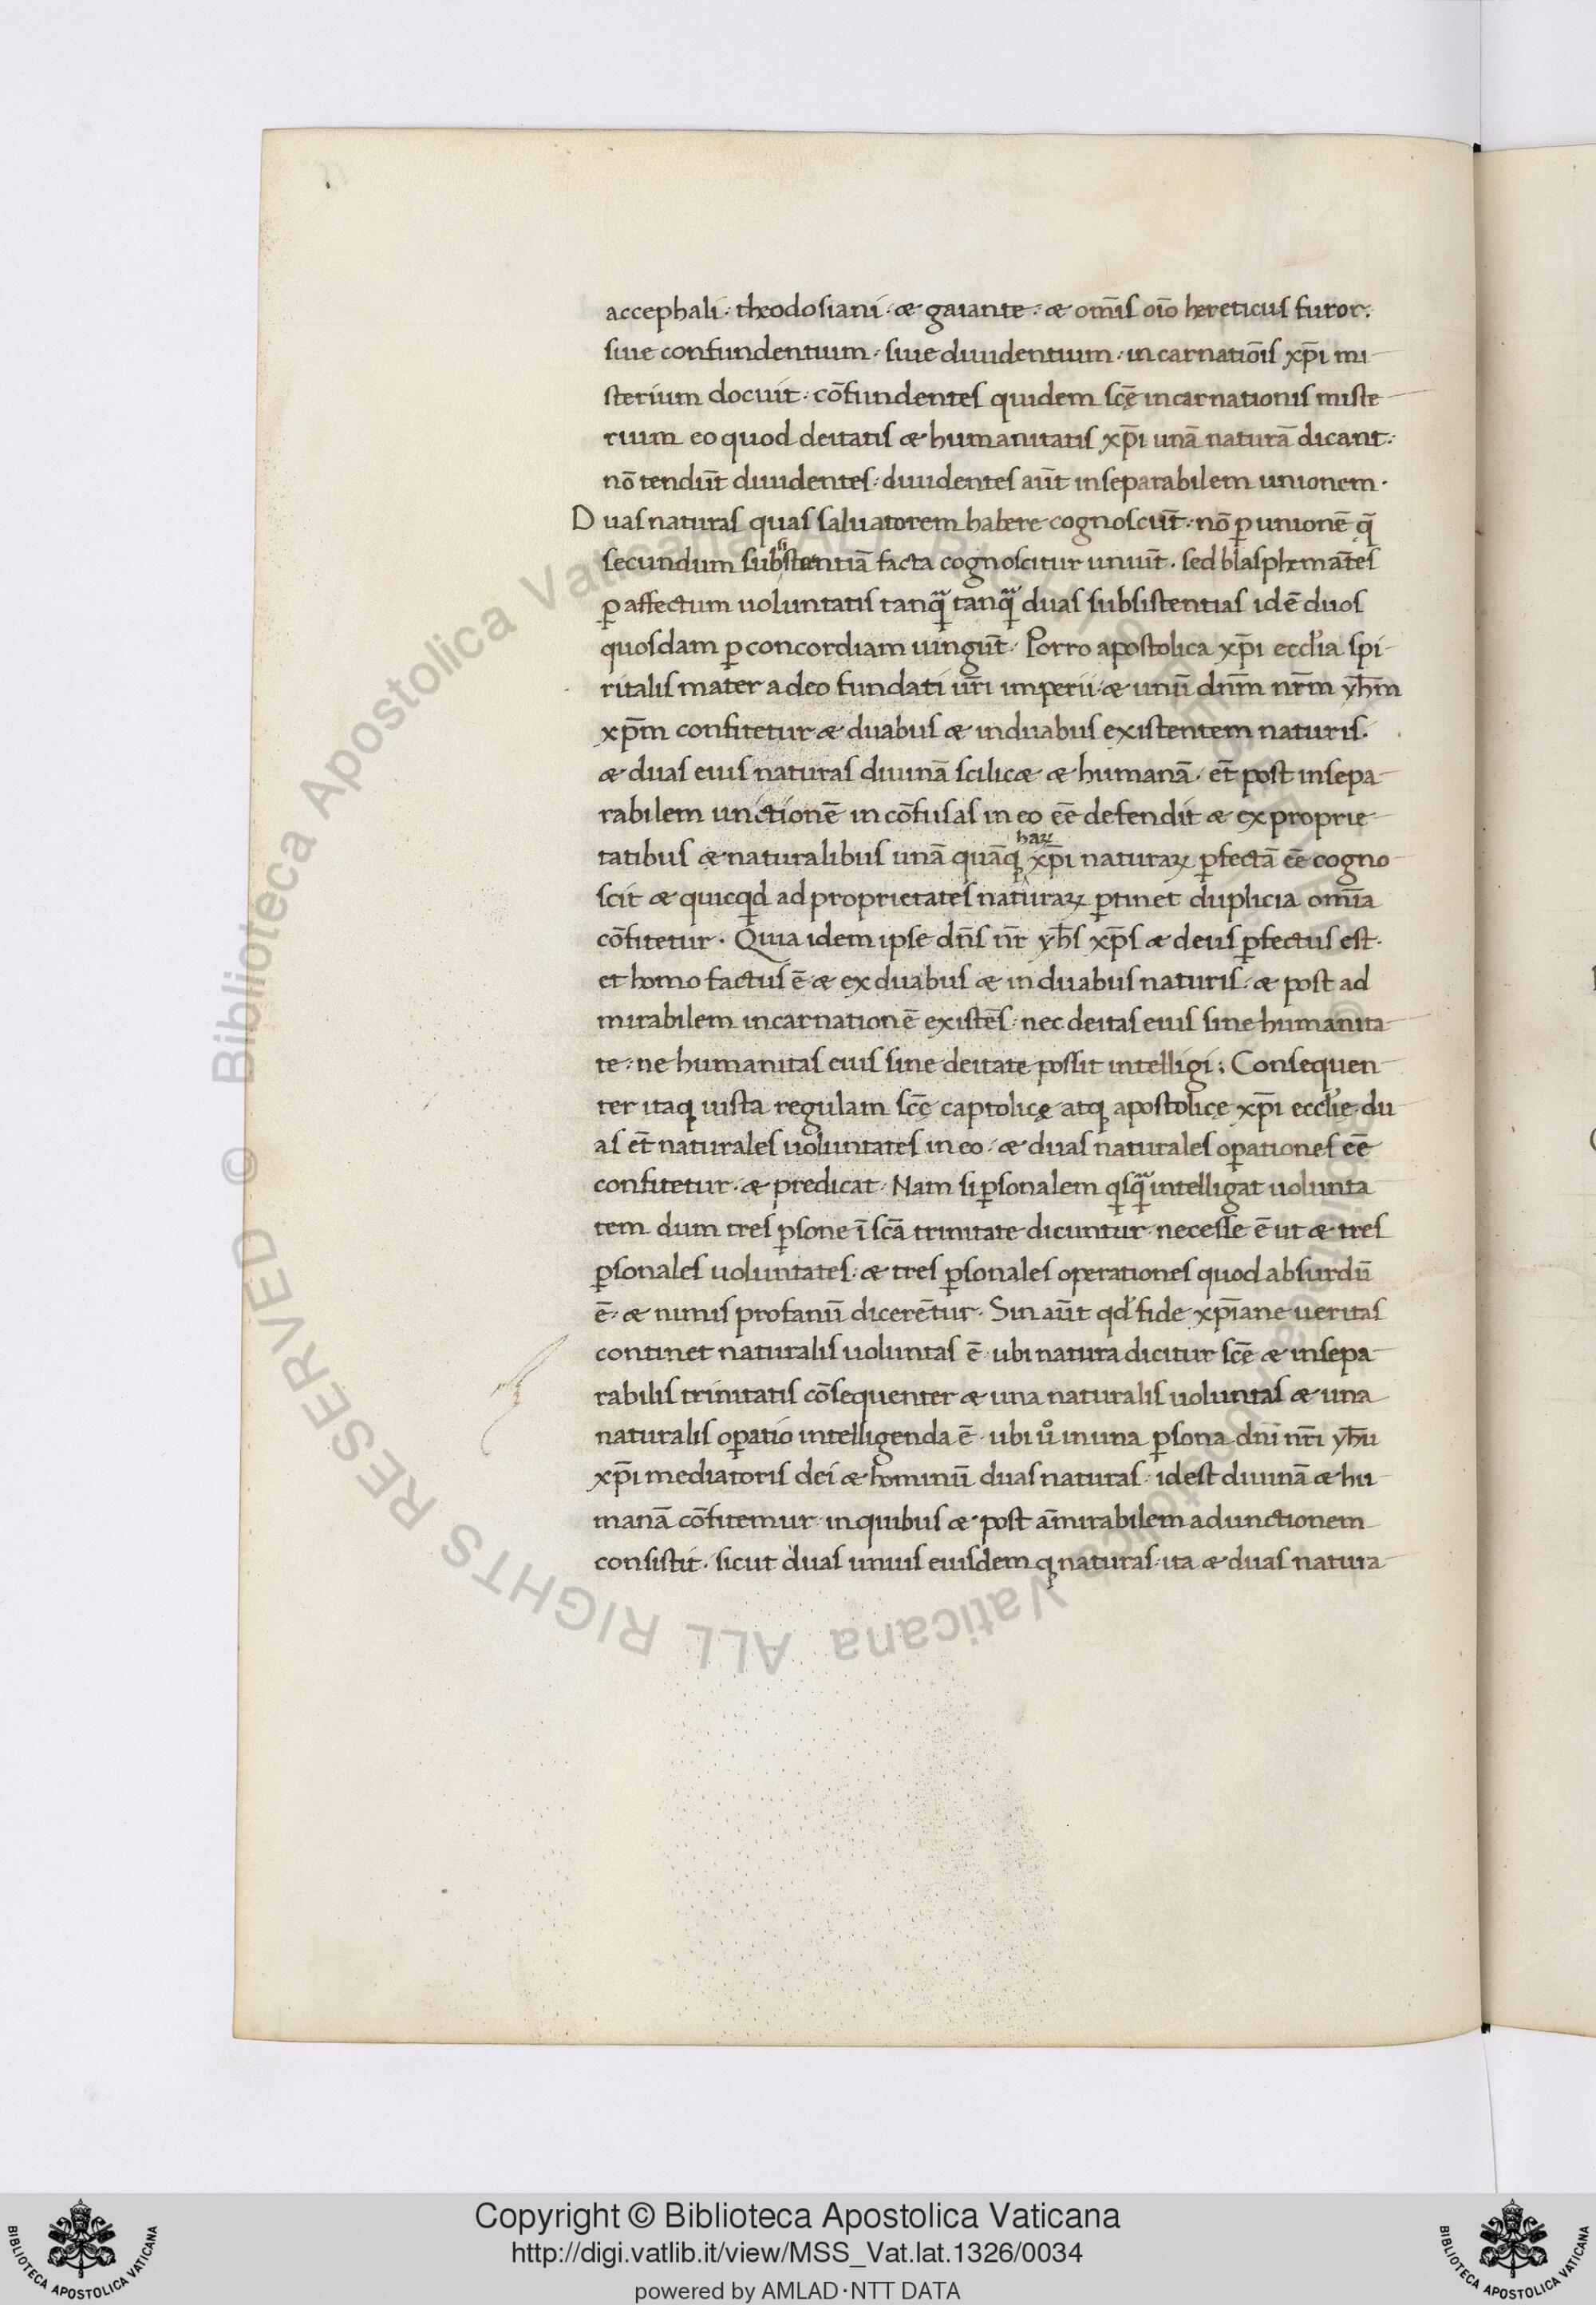 accephali· theodosiani· & gaiante· & om̄is oīo hereticus furor.
siue confundentium· siue diuidentium· incarnatiōis xp̄i mi
sterium docuit· cōfundentes quidem scę̄ incarnationis miste
rium eo quod deitatis & humanitatis xp̄i unā naturā dicant·
nō tendūt diuidentes· diuidentes aūt inseparabilem unionem·
Duas naturas quas saluatorem habere cognoscūt· nō ꝑ unionē q̄
secundum subsistentiā facta cognoscitur unuīt· sed blasphemātes
ꝑ affectum uoluntatis tanqͣ tanqͣ duas subsistentias idē duos
quosdam ꝑ concordiam uingūt· Porro apostolica xp̄i eccl̓ia spi
ritalis mater a deo fundati ur̄i imperii· & unū dn̄m nr̄m yh̄m
xp̄m confitetur & duabus & in duabus existentem naturis·
& duas eius naturas diuinā scilic& & humanā· et̄ post insepa
rabilem unctionē in cōfusas in eo eē defendit & ex proprie
tatibus & naturalibus unā quāq; haꝝ xp̄i naturaꝝ ꝑfectā eē cogno
scit & quicqd ad proprietates naturaꝝ ꝑtinet duplicia om̄ia
cōfitetur· Quia idem ipse dn̄s nr̄ yh̄s xp̄s & deus ꝑfectus est·
et homo factus ē & ex duabus & in duabus naturis· & post ad
mirabilem incarnationē existēs· nec deitas eius sine humanita
te· ne humanitas eius sine deitate possit intelligi; Consequen
ter itaq; iusta regulam scę̄ captolicę atq; apostolicę xp̄i eccl̓ie· du
as et̄ naturales uoluntates in eo· & duas naturales oꝑationes eē
confitetur· & predicat· Nam si ꝑsonalem qsqͣ intelligat uolunta
tem dum tres ꝑsone ī scā trinitate dicuntur· necesse ē ut & tres
ꝑsonales uoluntates· & tres ꝑsonales operationes quod absurdū
ē· & nimis profanū dicerētur· Sin aūt qd̓ fide xp̄iane ueritas
continet naturalis uoluntas ē· ubi natura dicitur scē & insepa
rabilis trinitatis cōsequenter & una naturalis uoluntas & una
naturalis oꝑatio intelligenda ē· ubi u̓o in una ꝑsona dn̄i nr̄i yh̄u
xp̄i mediatoris dei & hominū duas naturas· id est diuinā & hu
manā cōfitemur· in quibus & post am̄irabilem adunctionem
consistit· sicut duas unius eiusdem q; naturas· ita & duas natura
Copyright © Biblioteca Apostolica Vaticana
http://digi.vatlib.it/view/MSS_Vat.lat.1326/0034
powered by AMLAD·NTT DATA
BIBLIOTECA APOSTOLICA VATICANA
BIBLIOTECA APOSTOLICA VATICANA
© Biblioteca Apostolica Vaticana ALL RIGHTS RESERVED © Biblioteca Apostolica Vaticana ALL RIGHTS RESERVED